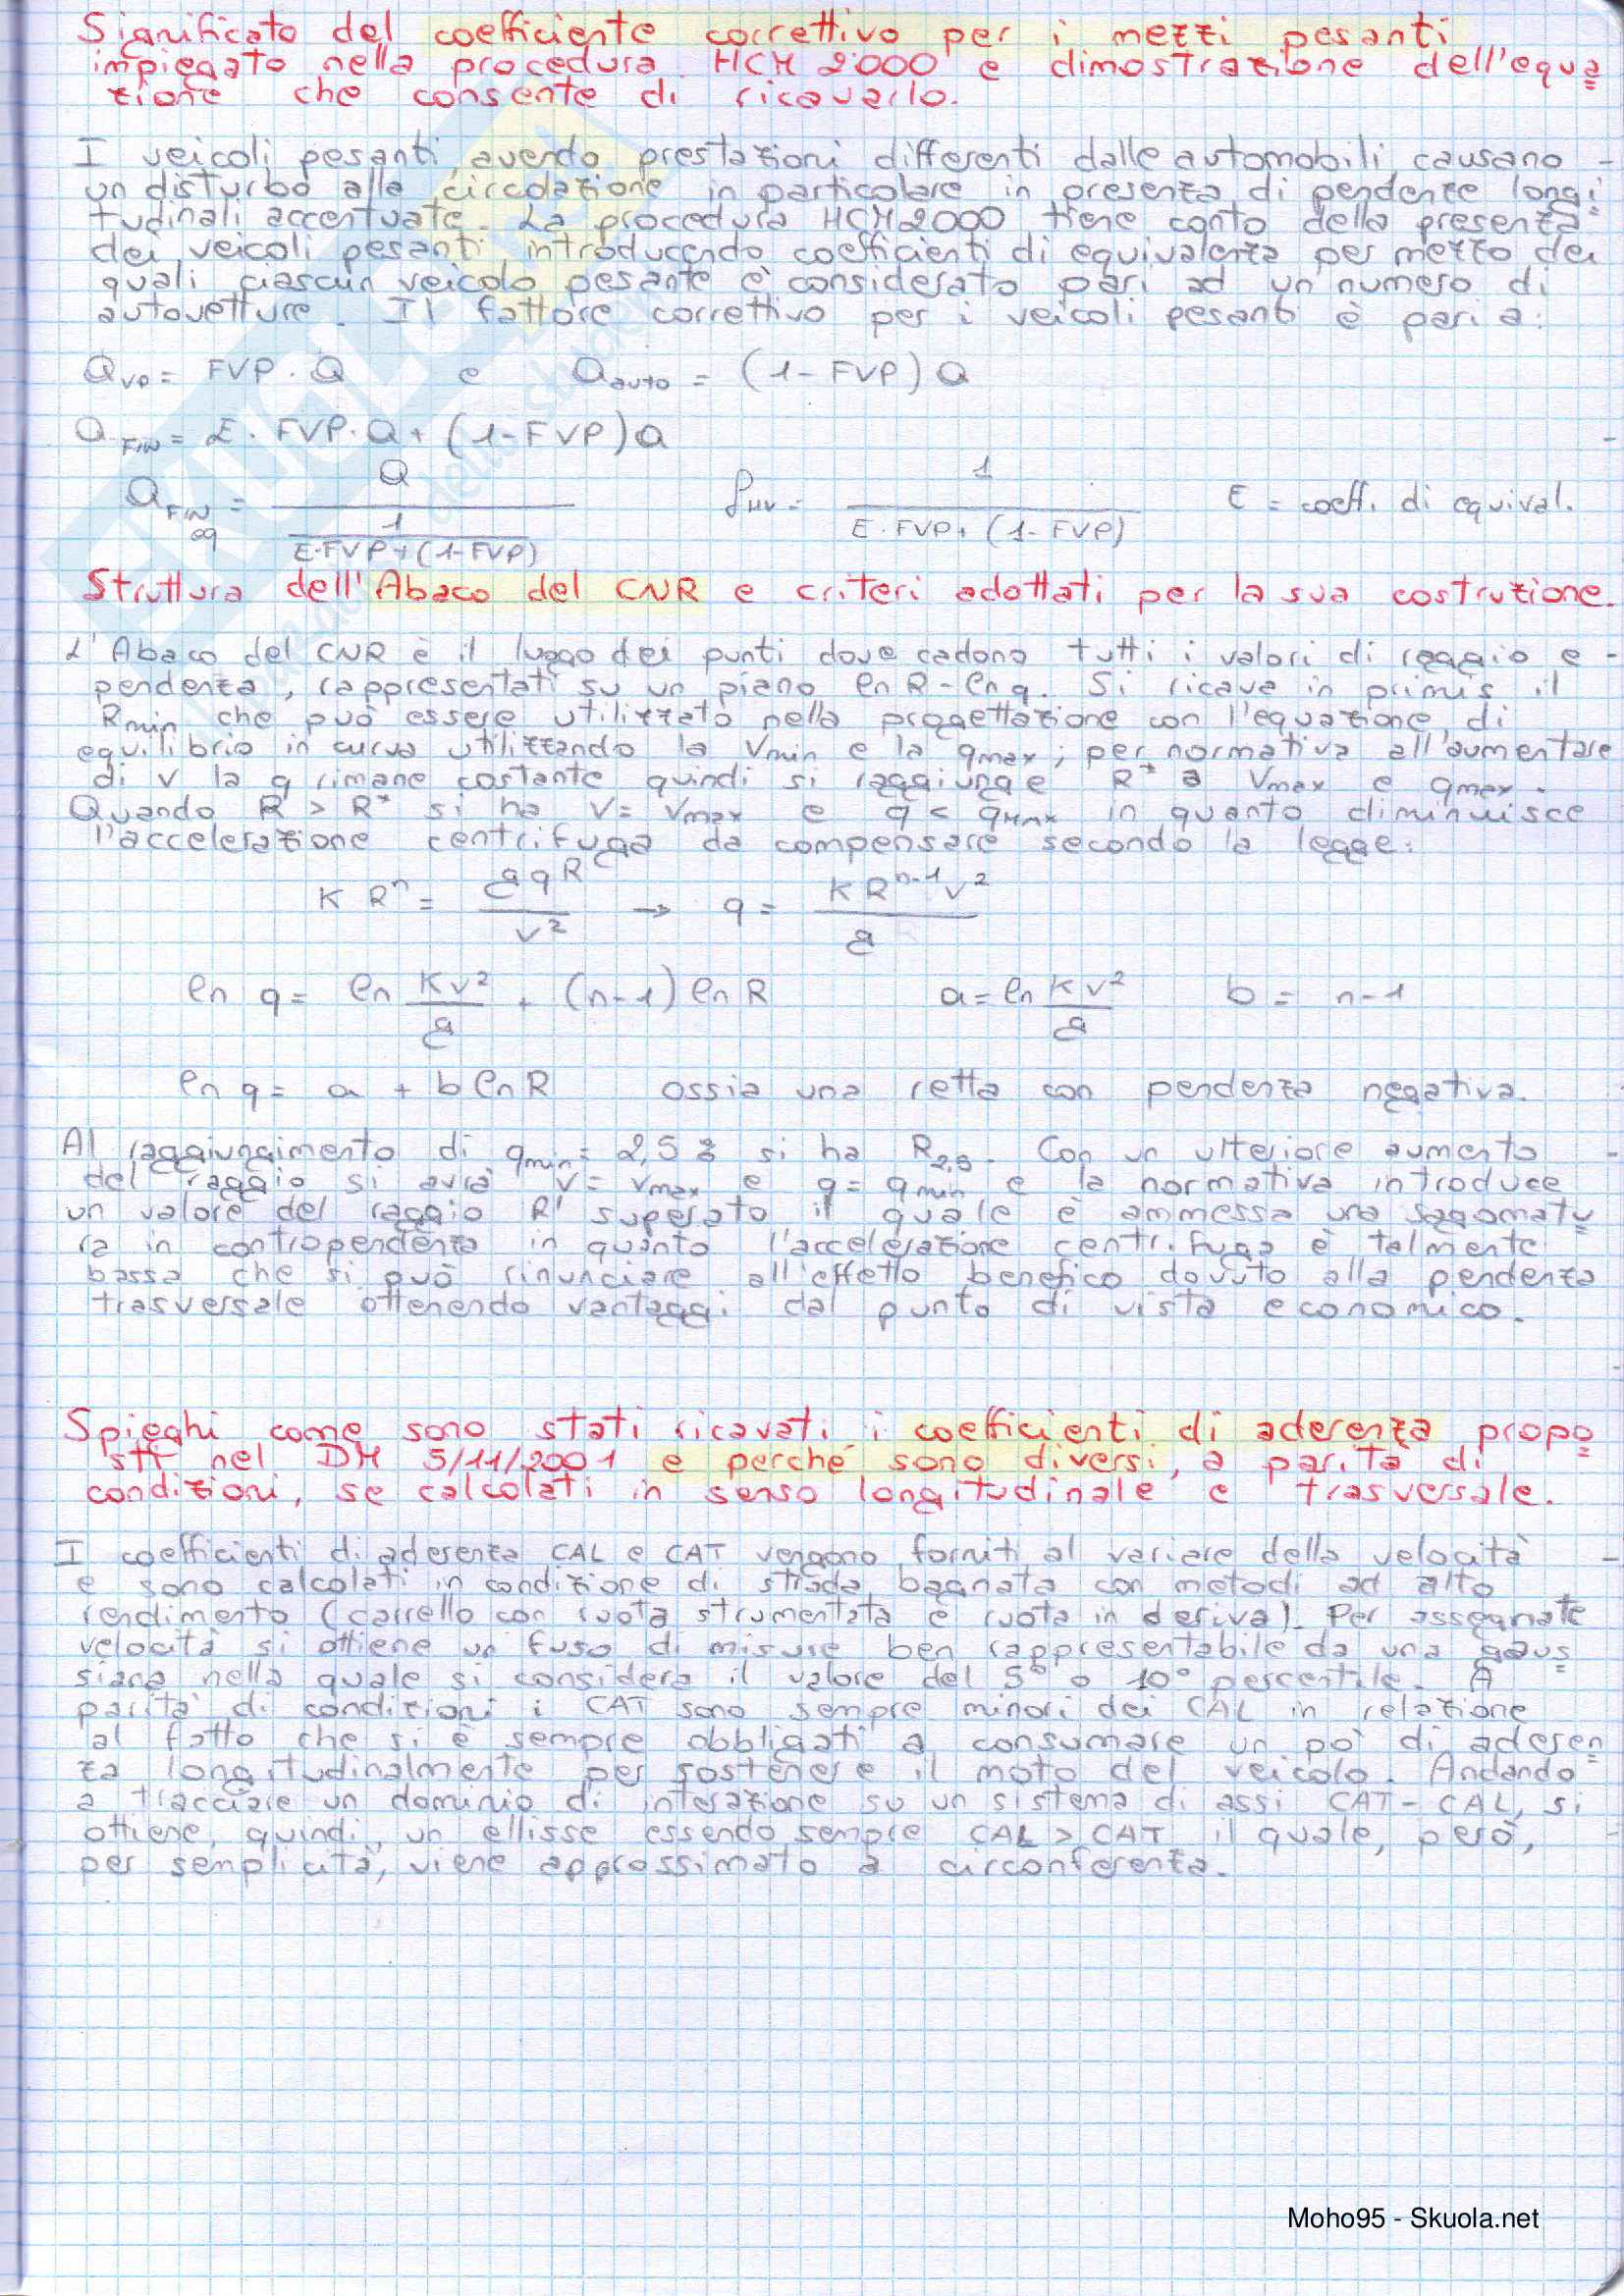 Significato del coefficiente correttivo per i mezzi pesanti
impiegato nella procedura HCM 2000 e dimostrazione dell'equa
zione che consente di ricavarlo.
I veicoli pesanti, avendo prestazioni differenti dalle automobili causano
un disturbo alla circolazione in particolare in presenza di pendenze longi
tudinali accentuate. La procedura HCM2000 tiene conto della presenza
dei veicoli pesanti introducendo coefficienti di equivalenza per mezzo dei
quali ciascun veicolo pesante è considerato pari ad un numero di
autovetture. Il fattore correttivo per i veicoli pesanti è pari a:
Q_VP = FVP · Q e Q_auto = (1-FVP)Q
Q_FIN = E · FVP · Q + (1-FVP)Q
Q_FIN eq = Q / (1 / (E·FVP+(1-FVP))) f_HV = 1 / (E·FVP+(1-FVP)) E = coeff. di equival.
Struttura dell'Abaco del CNR e criteri adottati per la sua costruzione.
L'Abaco del CNR è il luogo dei punti dove cadono tutti i valori di raggio e
pendenza, rappresentati su un piano ln R - ln q. Si ricava in primis il
Rmin che può essere utilizzato nella progettazione con l'equazione di
equilibrio in curva utilizzando la Vmin e la qmax; per normativa all'aumentare
di v la q rimane costante quindi si raggiunge R* a Vmax e qmax.
Quando R > R* si ha V = Vmax e q < qmax in quanto diminuisce
l'accelerazione centrifuga da compensare secondo la legge:
K Rⁿ = g q R / v² → q = K Rⁿ⁻¹ v² / g
ln q = ln Kv²/g + (n-1) ln R a = ln Kv²/g b = n-1
ln q = a + b ln R ossia una retta con pendenza negativa.
Al raggiungimento di qmin = 2,5 % si ha R2,5. Con un ulteriore aumento
del raggio si avrà V = Vmax e q = qmin e la normativa introduce
un valore del raggio R' superato il quale è ammessa una sagomatu
ra in contropendenza in quanto l'accelerazione centrifuga è talmente
bassa che si può rinunciare all'effetto benefico dovuto alla pendenza
trasversale ottenendo vantaggi dal punto di vista economico.
Spieghi come sono stati ricavati i coefficienti di aderenza propo
sti nel DM 5/11/2001 e perché sono diversi, a parità di
condizioni, se calcolati in senso longitudinale e trasversale.
I coefficienti di aderenza CAL e CAT vengono forniti al variare della velocità
e sono calcolati in condizione di strada bagnata con metodi ad alto
rendimento (carrello con ruota strumentata e ruota in deriva). Per assegnate
velocità si ottiene un fuso di misure ben rappresentabile da una gaus
siana nella quale si considera il valore del 5° o 10° percentile. A
parità di condizioni i CAT sono sempre minori dei CAL in relazione
al fatto che si è sempre obbligati a consumare un pò di aderen
za longitudinalmente per sostenere il moto del veicolo. Andando
a tracciare un dominio di interazione su un sistema di assi CAT-CAL, si
ottiene, quindi, un ellisse essendo sempre CAL > CAT il quale, però,
per semplicità, viene approssimato a circonferenza.
Moho95 - Skuola.net